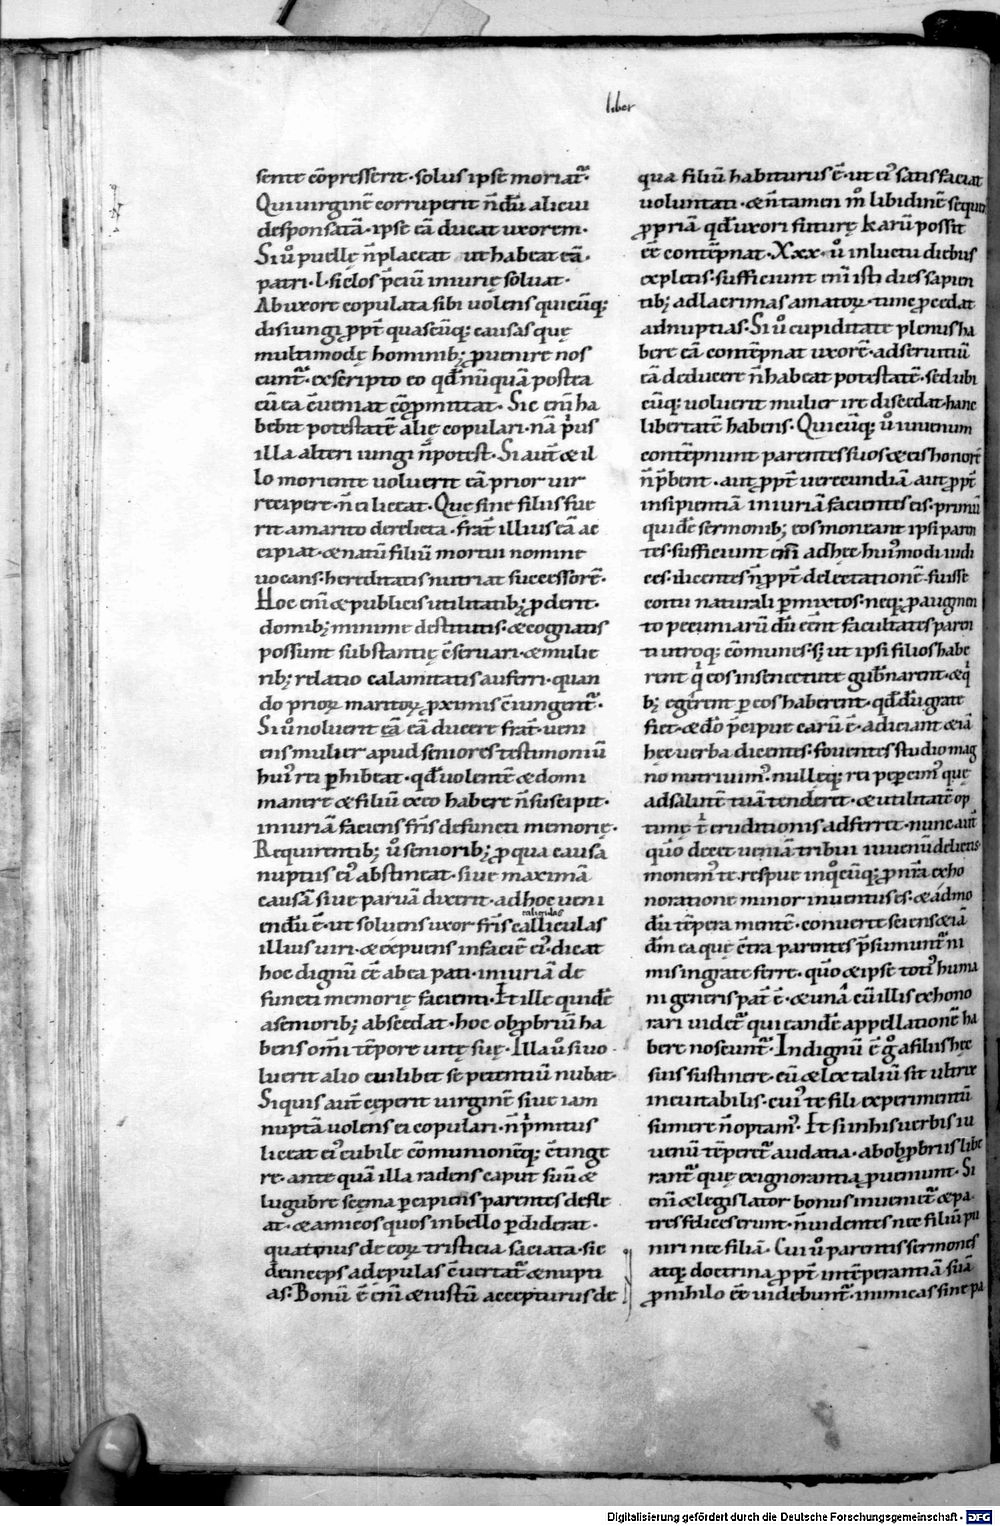 liber
sente cōpresserit· solus ipse moriat᷑·
Qui uirginē corruperit n̄dū alicui
desponsatā· ipse eā ducat uxorem·
Si ū puellę n̄ placeat ut habeat eā·
patri· l· siclos p̄ciū iniurię soluat·
Ab uxore copulata sibi uolens quicūq;
disiungi ꝓpt̄ quascūq; causas quę
multimodę hominib; ꝓuenire nos
cunt᷑· ex scripto eo qd̄ nūquā postea
cū ea c̄ueniat cōpmittat· Sic eni ha
bebit potestatē alię copulari· nā p'us
illa alteri iungi n̄ potest· Si aut̄ & il
lo moriente uoluerit eā prior uir
recipere· n̄ ei liceat· Que sine filiis fue
rit a marito derelicta· frat̄ illius eā ac
cipiat· & natū filiū mortui nomine
uocans· hereditatis nutriat successorē·
Hoc eni & publicis utilitatib; ꝓderit·
domib; minime destitutis· & cognatis
possunt substantię c̄seruari· & mulie
rib; relatio calamitatis auferri· quan
do prioꝝ maritoꝝ ꝓximis c̄iungent᷑·
Si ū noluerit eā ducere frat̄· ueni
ens mulier apud seniores testimoniū
hui' rei phibeat· qd̄ uolentē & domi
manere & filiū ex eo habere n̄ suscipit·
iniuriā faciens fr̄is defuncti memorię·
Requirentib; ū seniorib; ꝓ qua causa
nuptiis ei' abstineat· siue maximā
causā siue paruā dixerit· ad hoc ueni
endū ē· ut soluens uxor fr̄is calliculas
caligulas
illius uiri· & expuens in faciē ei' dicat
hoc dignū eē ab ea pati· iniuriā de
functi memorię facienti· Et ille quidē
a seniorib; abscedat· hoc obꝓbriū ha
bens omi tēpore uitę suę· Illa ū si uo
luerit alio cuilibet se petentiū nubat·
Si quis aut̄ cęperit uirginē siue iam
nuptā uolens ei copulari· n̄ p'mitus
liceat ei' cubile cōmunionēq; c̄tinge
re· ante quā illa radens caput suū &
lugubre scęma pcipiens parentes defle
at· & amicos quos in bello pdiderat·
quatinus de eoꝝ tristicia saciata· sic
deinceps ad epulas c̄uertat᷑ & nupti
as· Bonū ē eni & iustū accepturus de
qua filiū habiturus ē· ut ei' satisfaciat
uoluntati· & n̄ tamen m̄ libidinē sequens
ꝓpriā qd̄ uxori futurę karū possit
eē contēpnat· Xxx· ū in luctu diebus
expletis· sufficiunt eni isti dies sapien
tib; ad lacrimas amatoꝝ· tunc ꝓcedat
ad nuptias· Si ū cupiditate plenus ha
bere eā contēpnat uxorē· ad seruitiū
eā deducere n̄ habeat potestatē· sed ubi
cūq; uoluerit mulier ire discedat· hanc
libertatē habens· Quicūq; ū iuuenum
contēpnunt parentes suos & eis honorē
n̄ p̄bent· aut ꝓpt̄ uerecundiā aut ꝓpt̄
insipientiā iniuriā facientes eis· primū
quidē sermonib; eos moneant ipsi paren
tes· sufficiunt eni ad hęc hui'modi iudi
ces· dicentes n̄ ꝓpt̄ delectationē fuisse
coitu naturali pmixtos· neq; ꝓ augmen
to pecuniarū dū eēnt facultates paren
ti utroq; cōmunes· s; ut ipsi filios habe
rent q' eos in senectute gubnarent· & q'
b; egerent p eos haberent· qd̄ dū grate
fiet· & dō p̄cipue carū ē· adiciant & iā
hęc uerba dicentes· fouentes studio mag
no nutriuim'· nulleq; rei pepcim' quę
ad salutē tuā tenderet· & utilitatē op
timę t' eruditionis adferret· nunc aut̄
quō decet ueniā tribui iuuenū delictis·
monem' te· respue inq' cūq; ꝓ nr̄a exho
noratione minor inuentus es· & admo
dū tēpera mente· conuerte sciens & iā
dm̄ ea quę c̄tra parentes p̄sumunt᷑ ni
mis ingrate ferre· quō & ipse toti' huma
ni generis pat̄ ē· & unā cū illis exhono
rari uidet᷑ qui eandē appellationē ha
bere noscunt᷑· Indignū ē g̊ a filiis hęc
suis sustinere· cū & lex taliū sit ultrix
ineuitabilis· cui' te fili experimentū
sumere n̄ optam'· Et si in his uerbis iu
uenū tēperet᷑ audatia· ab obꝓbriis libe
rant᷑ quę ex ignorantia ꝓueniunt· Si
eni & legislator bonus inueniet᷑ & pa
tres felices erunt· n̄ uidentes nec filiū pu
niri nec filiā· Cui ū parentis sermones
atq; doctrina ꝓpt̄ intēperantiā suā
ꝓ nihilo eē uidebunt᷑· inimicas sine pa
Digitalisierung gefördert durch die Deutsche Forschungsgemeinschaft - DFG